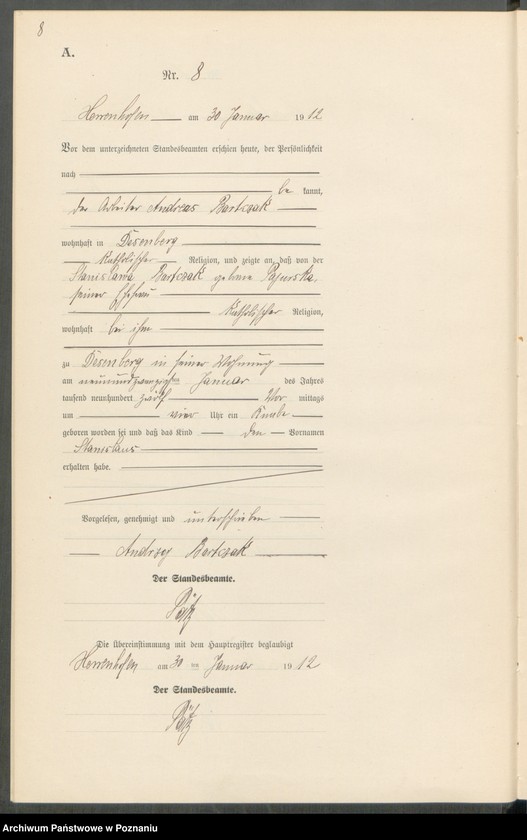 8
A.
Nr. 8
Herrenhofen am 30 Januar 1912
Vor dem unterzeichneten Standesbeamten erschien heute, der Persönlichkeit
nach
be kannt,
der Arbeiter Andreas Bartczak
wohnhaft in Desenberg
Katholischer Religion, und zeigte an, daß von der
Stanislawa Bartczak geborne Pajurska,
seiner Ehefrau
Katholischer Religion,
wohnhaft bei ihm
zu Desenberg in seiner Wohnung
am neunundzwanzigsten Januar des Jahres
tausend neunhundert zwölf Vor mittags
um vier Uhr ein Knabe
geboren worden sei und daß das Kind den Vornamen
Stanislaus
erhalten habe.
Vorgelesen, genehmigt und unterschrieben
Andrzej Bartczak
Der Standesbeamte.
Die Übereinstimmung mit dem Hauptregister beglaubigt
Herrenhofen am 30 ten Januar 1912
Der Standesbeamte.
Archiwum Państwowe w Poznaniu